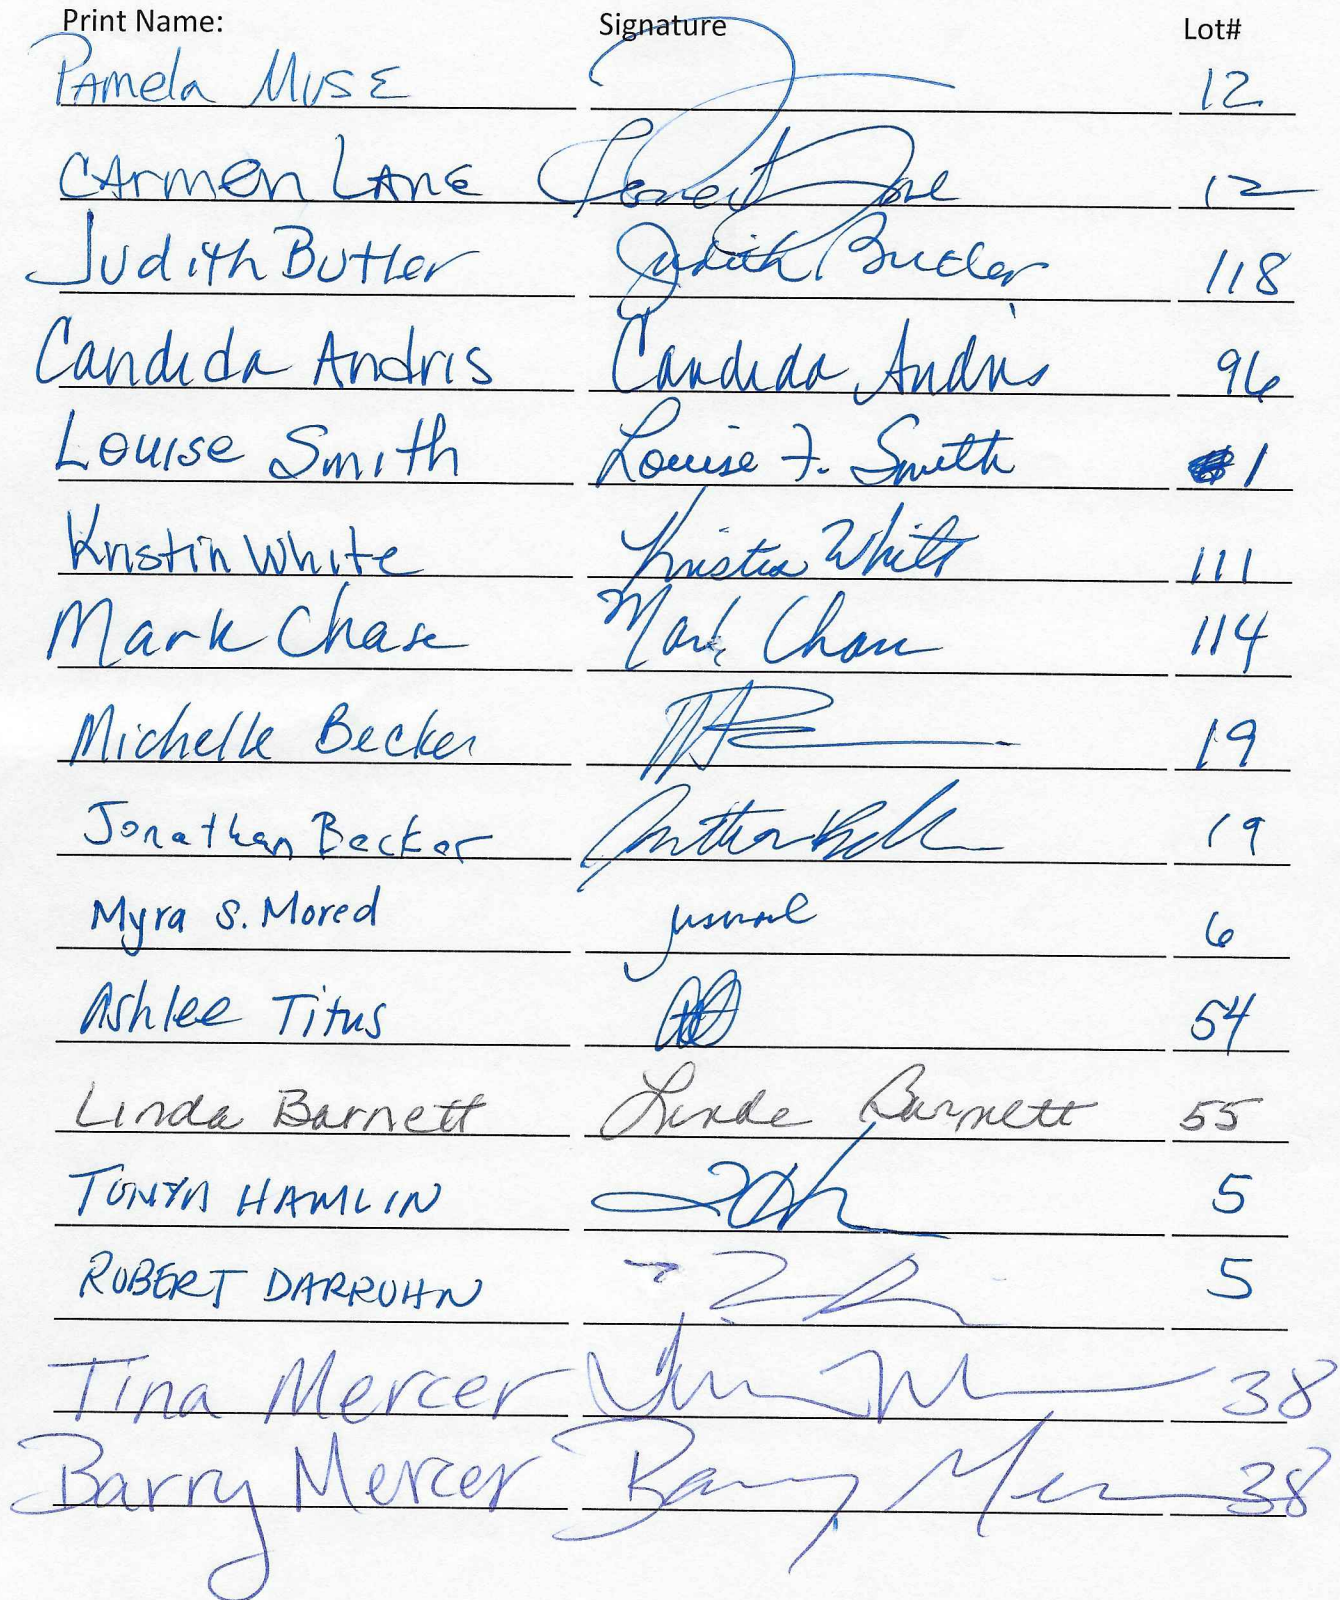 Print Name: Signature Lot#
Pamela Muse 12
Carmen Lane 12
Judith Butler Judith Butler 118
Candida Andris Candida Andris 96
Louise Smith Louise F. Smith 1
Kristin White Kristin White 111
Mark Chase Mark Chase 114
Michelle Becker 19
Jonathan Becker 19
Myra S. Mored 6
Ashlee Titus 54
Linda Barnett Linda Barnett 55
TONYA HAMLIN 5
ROBERT DARROHN 5
Tina Mercer 38
Barry Mercer Barry Mercer 38